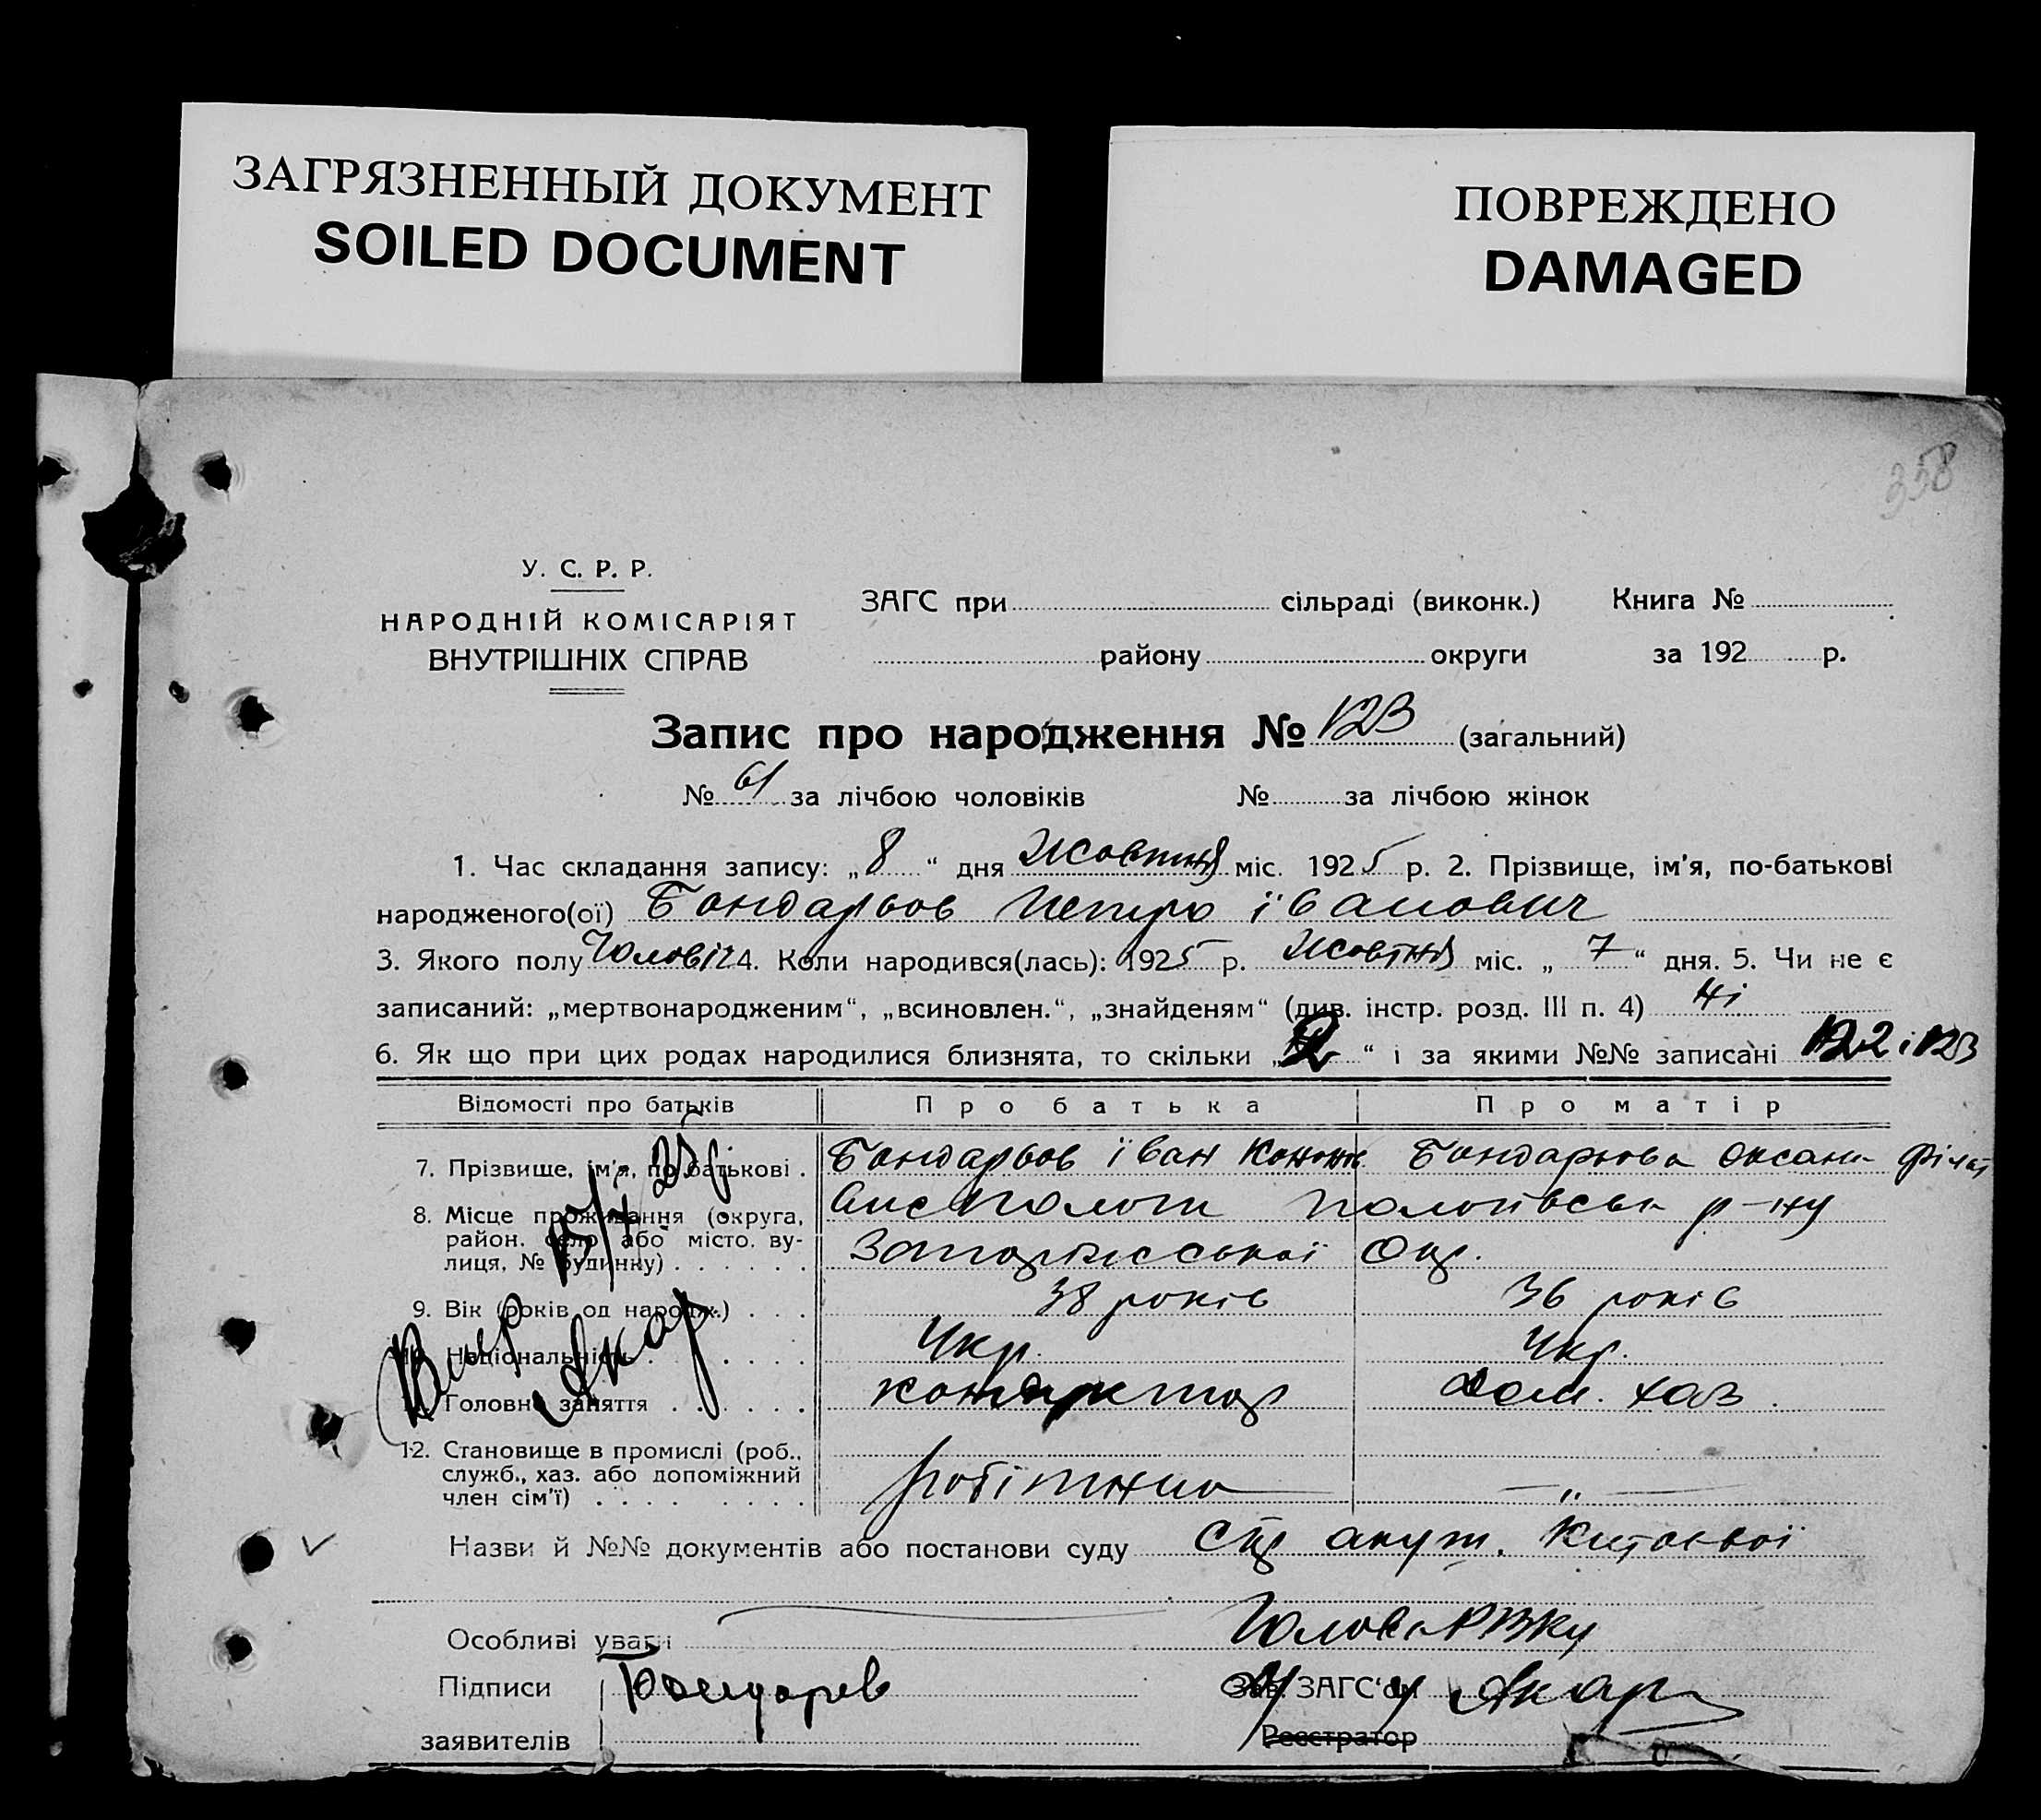 ЗАГРЯЗНЕННЫЙ ДОКУМЕНТ
SOILED DOCUMENT
ПОВРЕЖДЕНО
DAMAGED
358
У. С. Р. Р.
НАРОДНІЙ КОМІСАРІЯТ
ВНУТРІШНІХ СПРАВ
ЗАГС при сільраді (виконк.) Книга №
району округи за 192 р.
Запис про народження № 123 (загальний)
№ 61 за лічбою чоловіків № за лічбою жінок
1. Час складання запису: „8“ дня Жовтня міс. 1925 р. 2. Прізвище, ім'я, по-батькові
народженого(ої) Бондарьов Петро Іванович
3. Якого полу Чоловіч 4. Коли народився(лась): 1925 р. Жовтня міс. „7“ дня. 5. Чи не є
записаний: „мертвонародженим“, „всиновлен.“, „знайденям“ (див. інстр. розд. III п. 4) Ні
6. Як що при цих родах народилися близнята, то скільки „2“ і за якими №№ записані 122 і 123
Відомості про батьків Про батька Про матір
7. Прізвище, ім'я, по батькові . Бондарьов Іван Конон. Бондарьова Оксана Філат
8. Місце проживання (округа, район, село або місто, вулиця, № будинку) Пологи Пологівськ р-ну
Запоріжської Окр.
9. Вік (років од народж.) 38 років 36 років
10. Національність Укр. Укр.
11. Головне заняття кондуктор дом. хаз.
12. Становище в промислі (роб., служб., хаз. або допоміжний член сім'ї) робітник — „ —
Вмер
Акар
Назви й №№ документів або постанови суду акуш.
Особливі уваги Голова РВКу
Підписи Бондарев Зав. ЗАГС'ом Акар
заявителів Реєстратор